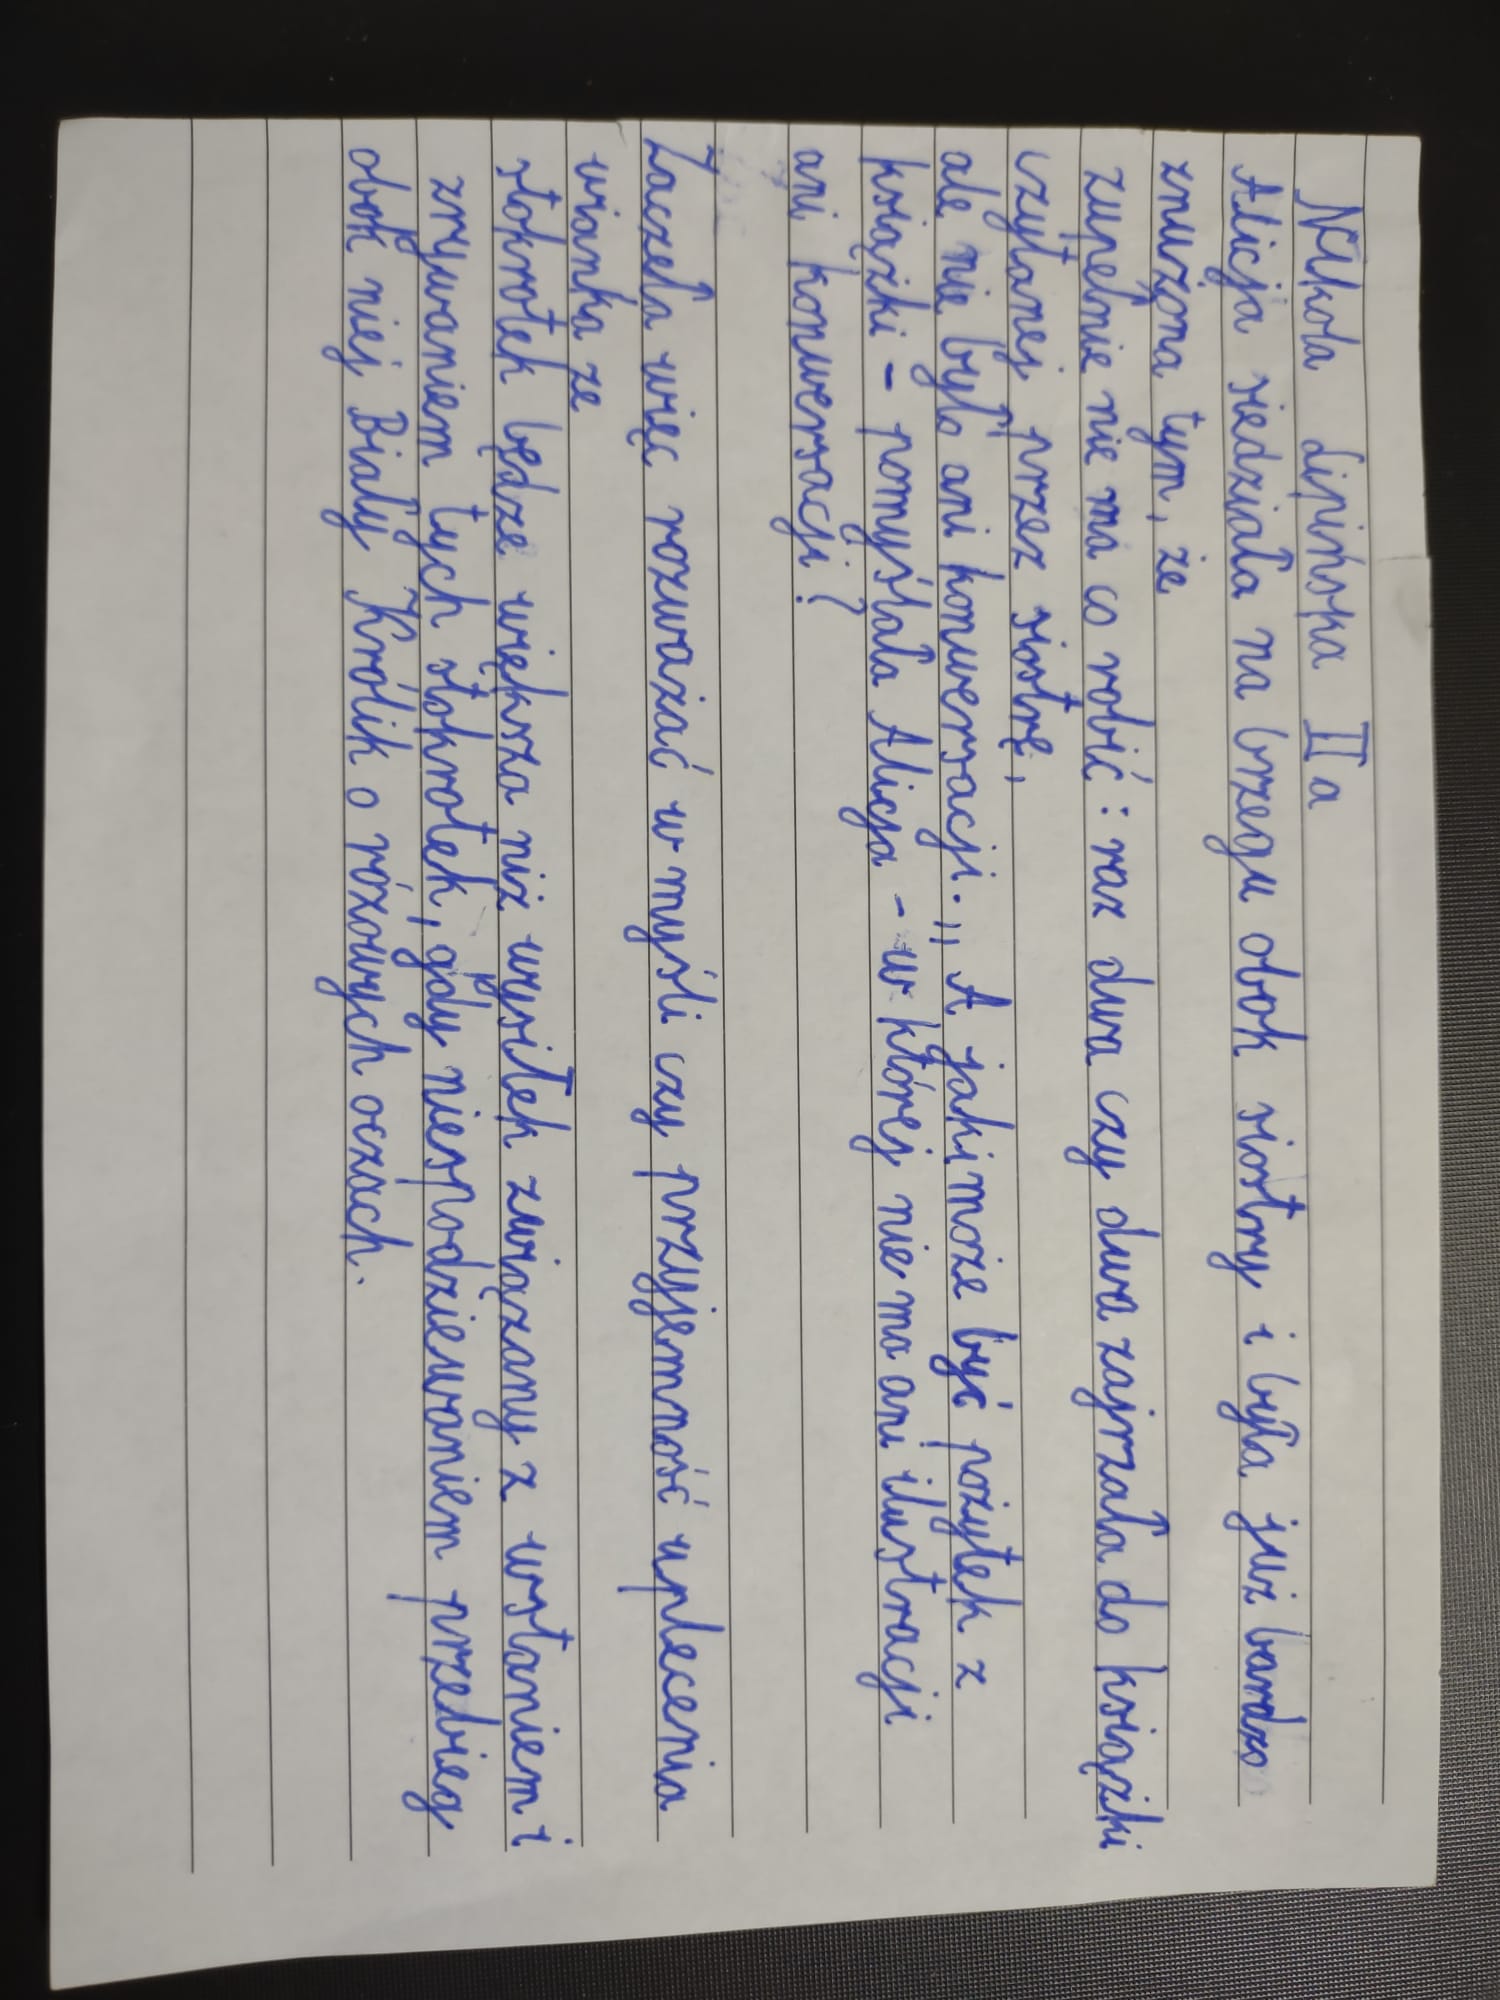 Nikola Lipińska IIa
Alicja siedziała na brzegu obok siostry i była już bardzo
znużona tym, że
zupełnie nie ma co robić : raz dwa czy dwa zajrzała do książki
czytanej przez siostrę,
ale nie było ani konwersacji. „ A jaki może być pożytek z
książki – pomyślała Alicja – w której nie ma ani ilustracji
ani konwersacji?
Zaczęła więc rozważać w myśli czy przyjemność uplecenia
wianka ze
stokrotek będze większa niż wysiłek związany z wstaniem i
zrywaniem tych stokrotek, gdy niespodziewaniem przebieg
obok niej Biały Królik o różowych oczach.